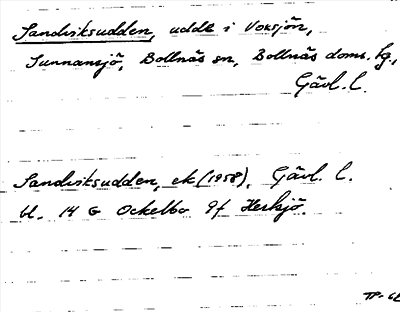 Sandviksudden, udde i Voxsjön,
Sunnansjö, Bollnäs sn, Bollnäs doms. hg.,
Gävl. l.
Sandviksudden, ek (1958), Gävl. l.
bl. 14 G Ockelbo 9f Herksjö.